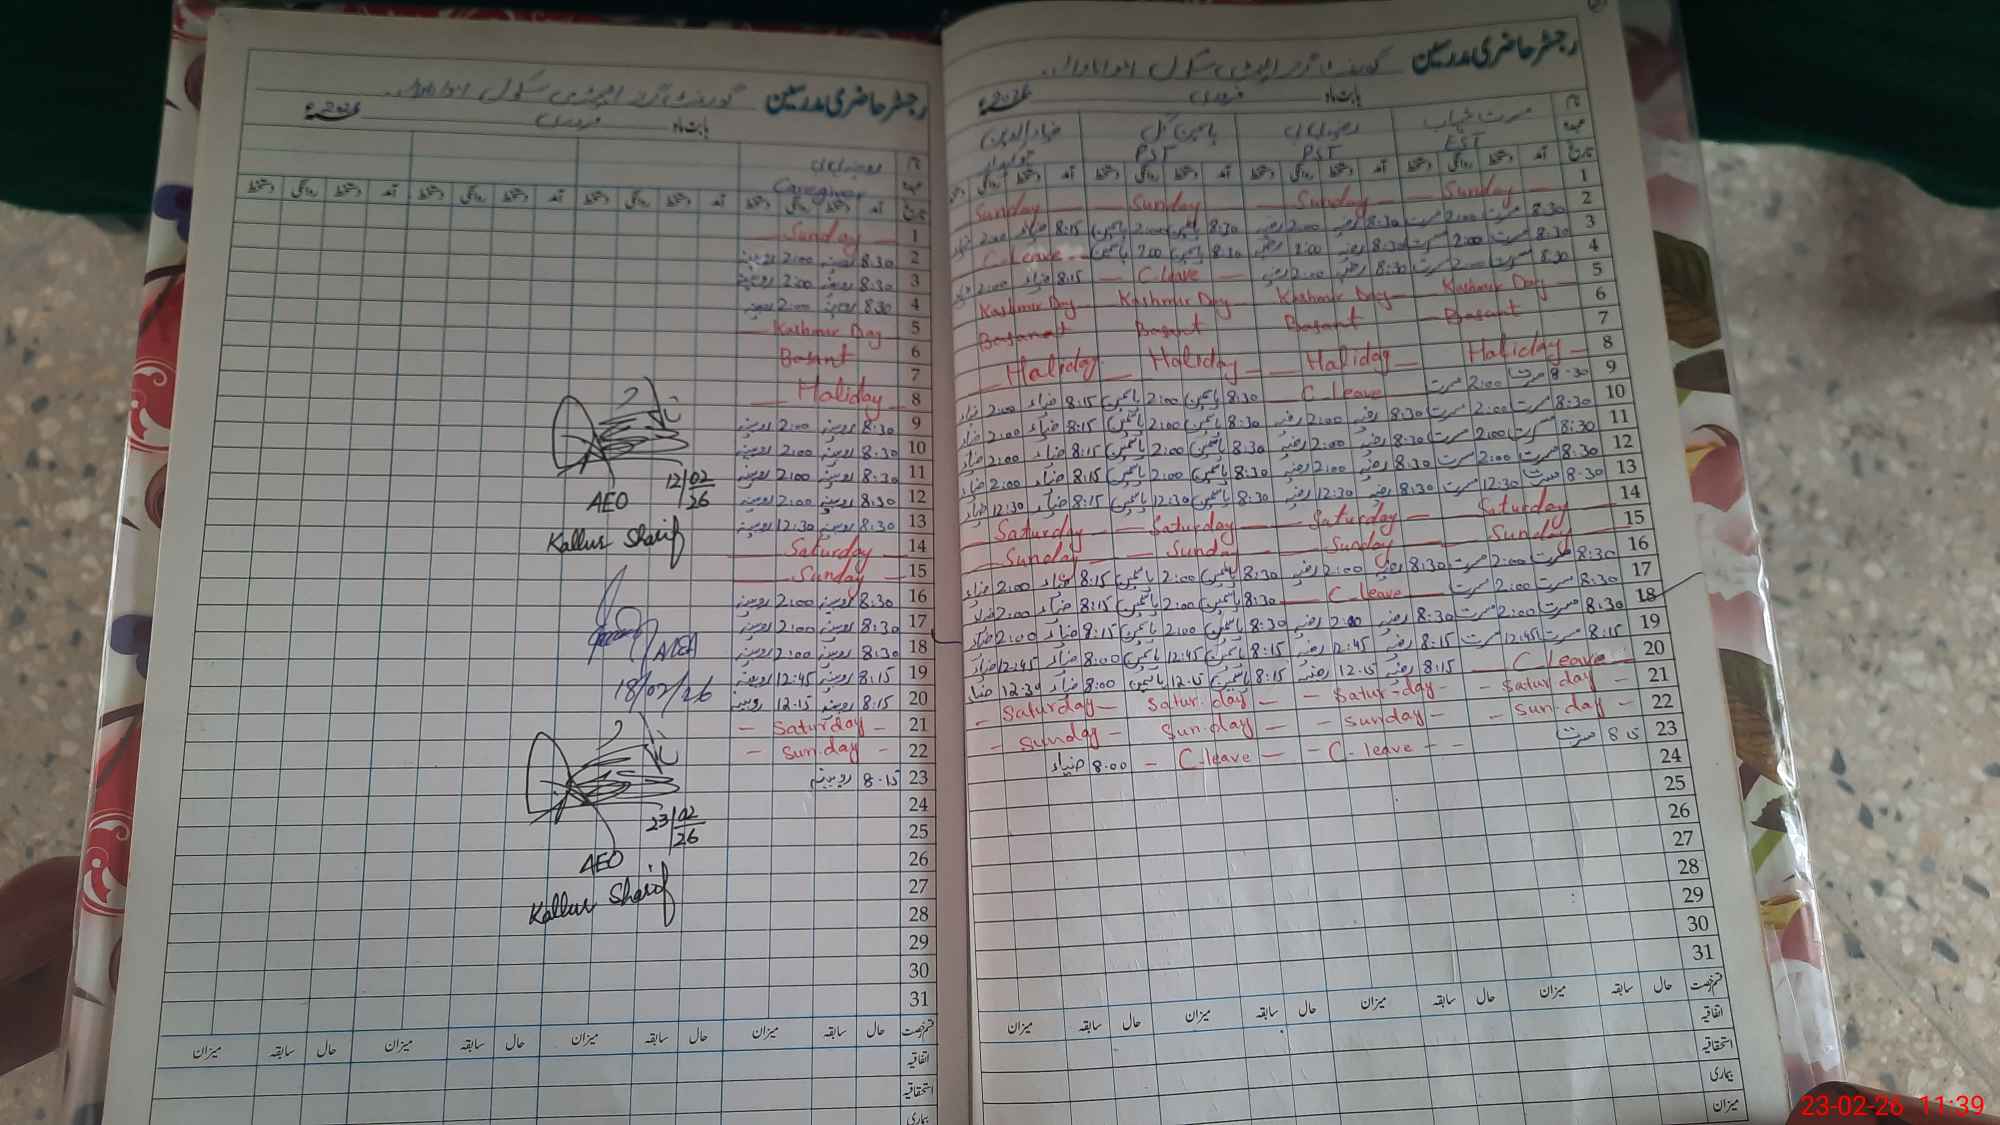 رجسٹر حاضری مدرسین گورنمنٹ گرلز ایلیمنٹری سکول
بابت ماہ فروری 2026ء
نام
عہدہ مسرت EST رضیہ PST یاسمین گل PST ضیاء الدین
تاریخ آمد دستخط روانگی دستخط آمد دستخط روانگی دستخط آمد دستخط روانگی دستخط آمد دستخط روانگی
1 — Sunday — — Sunday — — Sunday — Sunday
2 8:30 مسرت 2:00 مسرت 8:30 رضیہ 2:00 رضیہ 8:30 یاسمین 2:00 یاسمین 8:15 ضیاء 2:00 ضیاء
3 8:30 مسرت 2:00 مسرت 8:30 رضیہ 2:00 رضیہ 8:30 یاسمین 2:00 یاسمین C-leave
4 8:30 مسرت 2:00 مسرت 8:30 رضیہ 2:00 رضیہ — C-leave — 8:15 ضیاء 2:00 ضیاء
5 Kashmir Day — Kashmir Day — Kashmir Day — Kashmir Day
6 Basant Basant Basant Basanat
7
8 Haliday — Haliday — Haliday — Haliday
9 8:30 مسرت 2:00 مسرت C-leave 8:30 یاسمین 2:00 یاسمین 8:15 ضیاء 2:00 ضیاء
10 8:30 مسرت 2:00 مسرت 8:30 رضیہ 2:00 رضیہ 8:30 یاسمین 2:00 یاسمین 8:15 ضیاء 2:00 ضیاء
11 8:30 مسرت 2:00 مسرت 8:30 رضیہ 2:00 رضیہ 8:30 یاسمین 2:00 یاسمین 8:15 ضیاء 2:00 ضیاء
12 8:30 مسرت 2:00 مسرت 8:30 رضیہ 2:00 رضیہ 8:30 یاسمین 2:00 یاسمین 8:15 ضیاء 2:00 ضیاء
13 8:30 مسرت 12:30 مسرت 8:30 رضیہ 12:30 رضیہ 8:30 یاسمین 12:30 یاسمین 8:15 ضیاء 12:30 ضیاء
14 Saturday — Saturday — Saturday — Saturday
15 Sunday — Sunday — Sunday — Sunday
16 8:30 مسرت 2:00 مسرت 8:30 رضیہ 2:00 رضیہ 8:30 یاسمین 2:00 یاسمین 8:15 ضیاء 2:00 ضیاء
17 8:30 مسرت 2:00 مسرت — C-leave — 8:30 یاسمین 2:00 یاسمین 8:15 ضیاء 2:00 ضیاء
18 8:30 مسرت 2:00 مسرت 8:30 رضیہ 2:00 رضیہ 8:30 یاسمین 2:00 یاسمین 8:15 ضیاء 2:00 ضیاء
19 8:15 مسرت 12:45 مسرت 8:15 رضیہ 12:45 رضیہ 8:15 یاسمین 12:45 یاسمین 8:00 ضیاء 12:45 ضیاء
20 — C leave — 8:15 رضیہ 12:15 رضیہ 8:15 یاسمین 12:15 یاسمین 8:00 ضیاء 12:30 ضیاء
21 - Saturday - - Satur-day - Satur.day — - Saturday -
22 - Sun.day - - Sunday - Sun.day - - Sunday -
23 8:15 مسرت - C-leave - - - C-leave - 8:00 ضیاء
24
25
26
27
28
29
30
31
قسم رخصت حال سابقہ میزان حال سابقہ میزان حال سابقہ میزان حال سابقہ میزان
اتفاقیہ
استحقاقیہ
بیماری
میزان
رجسٹر حاضری مدرسین گورنمنٹ گرلز ایلیمنٹری سکول
بابت ماہ فروری 2026ء
نام
عہدہ Caregiver
تاریخ آمد دستخط روانگی دستخط آمد دستخط روانگی دستخط آمد دستخط روانگی دستخط آمد دستخط روانگی دستخط
1 — Sunday —
2 8:30 روبینہ 2:00 روبینہ
3 8:30 روبینہ 2:00 روبینہ
4 8:30 روبینہ 2:00 روبینہ
5 — Kashmir Day
6 Basant
7
8 — Haliday —
9 8:30 روبینہ 2:00 روبینہ
10 8:30 روبینہ 2:00 روبینہ
11 8:30 روبینہ 2:00 روبینہ
12 8:30 روبینہ 2:00 روبینہ
13 8:30 روبینہ 12:30 روبینہ
14 — Saturday —
15 — Sunday —
16 8:30 روبینہ 2:00 روبینہ
17 8:30 روبینہ 2:00 روبینہ
18 8:30 روبینہ 2:00 روبینہ
19 8:15 روبینہ 12:45 روبینہ
20 8:15 روبینہ 12:15 روبینہ
21 - Saturday -
22 - Sun.day -
23 8.15 روبینہ
24
25
26
27
28
29
30
31
12/02/26
AEO
Kallur Sharif
18/02/26
23/02/26
AEO
Kallur Sharif
قسم رخصت حال سابقہ میزان حال سابقہ میزان حال سابقہ میزان حال سابقہ میزان
اتفاقیہ
استحقاقیہ
بیماری
23-02-26 11:39